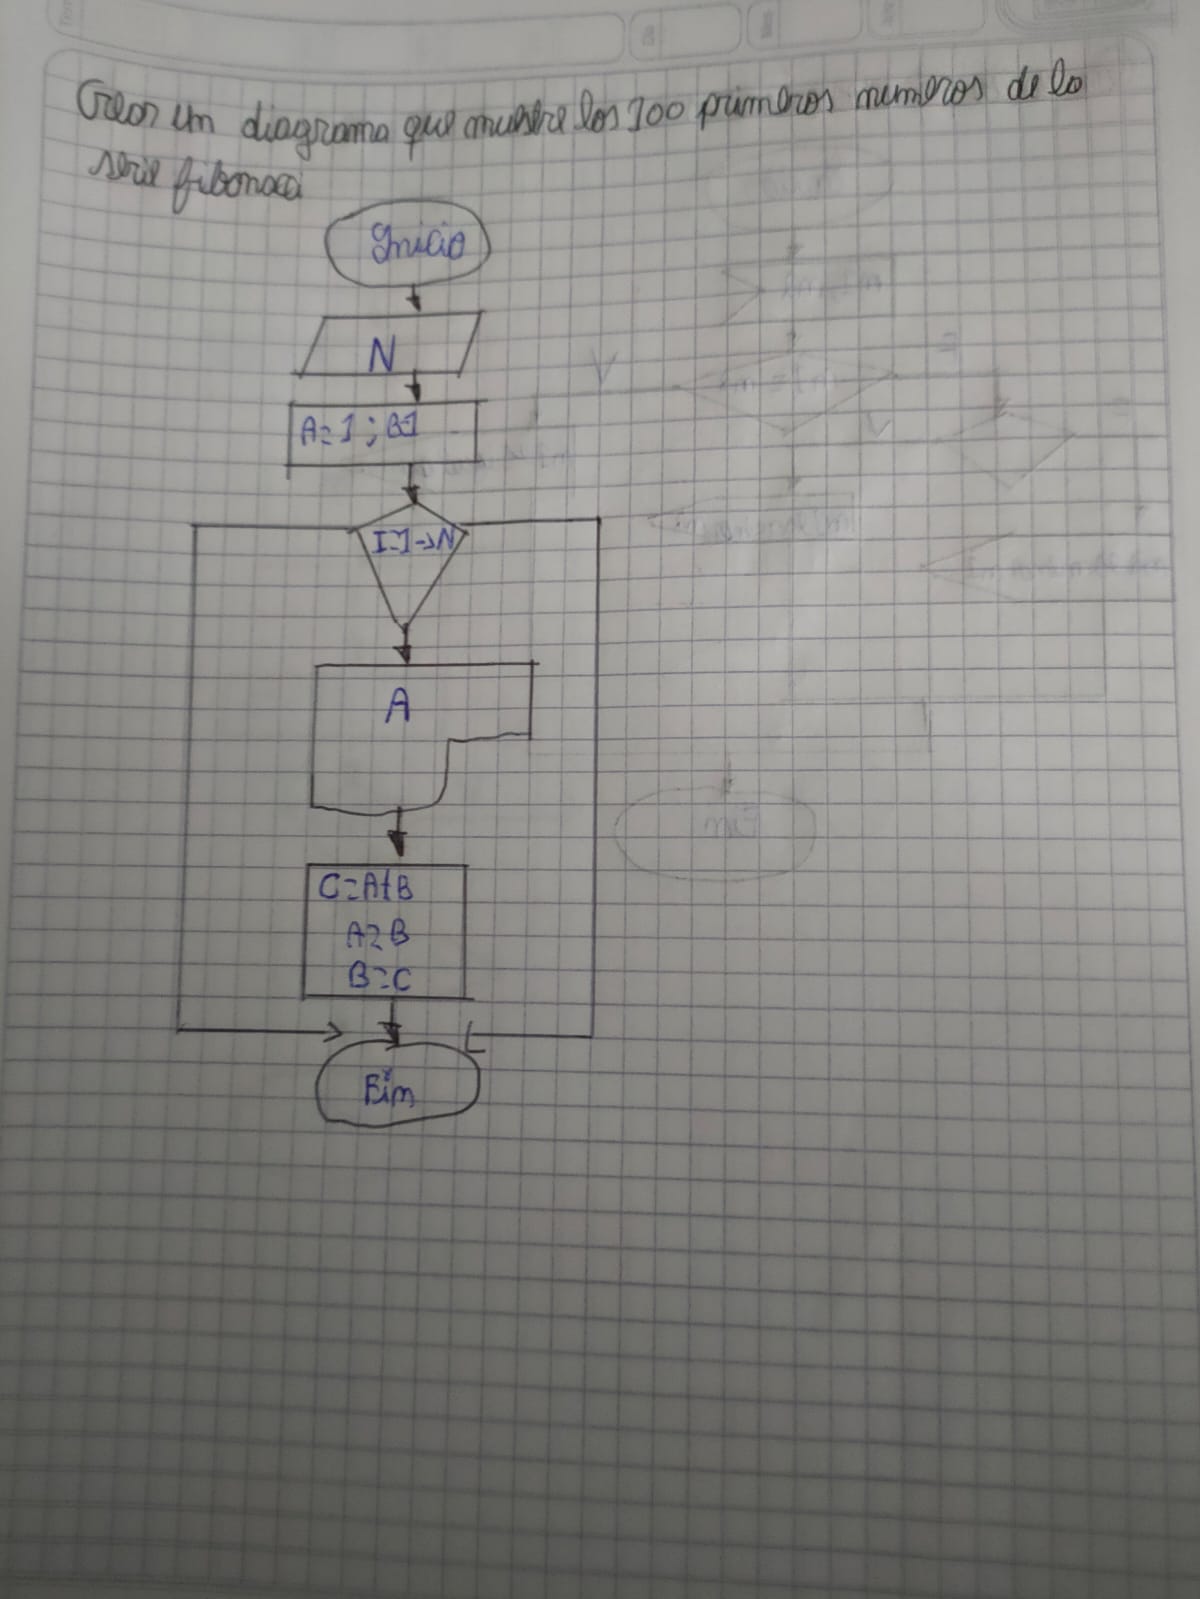 Crear un diagrama que muestre los 100 primeros numeros de la
serie fibonacci
Inicio
N
A=1 ; B=1
I=1→N
A
C=A+B
A=B
B=C
Fin